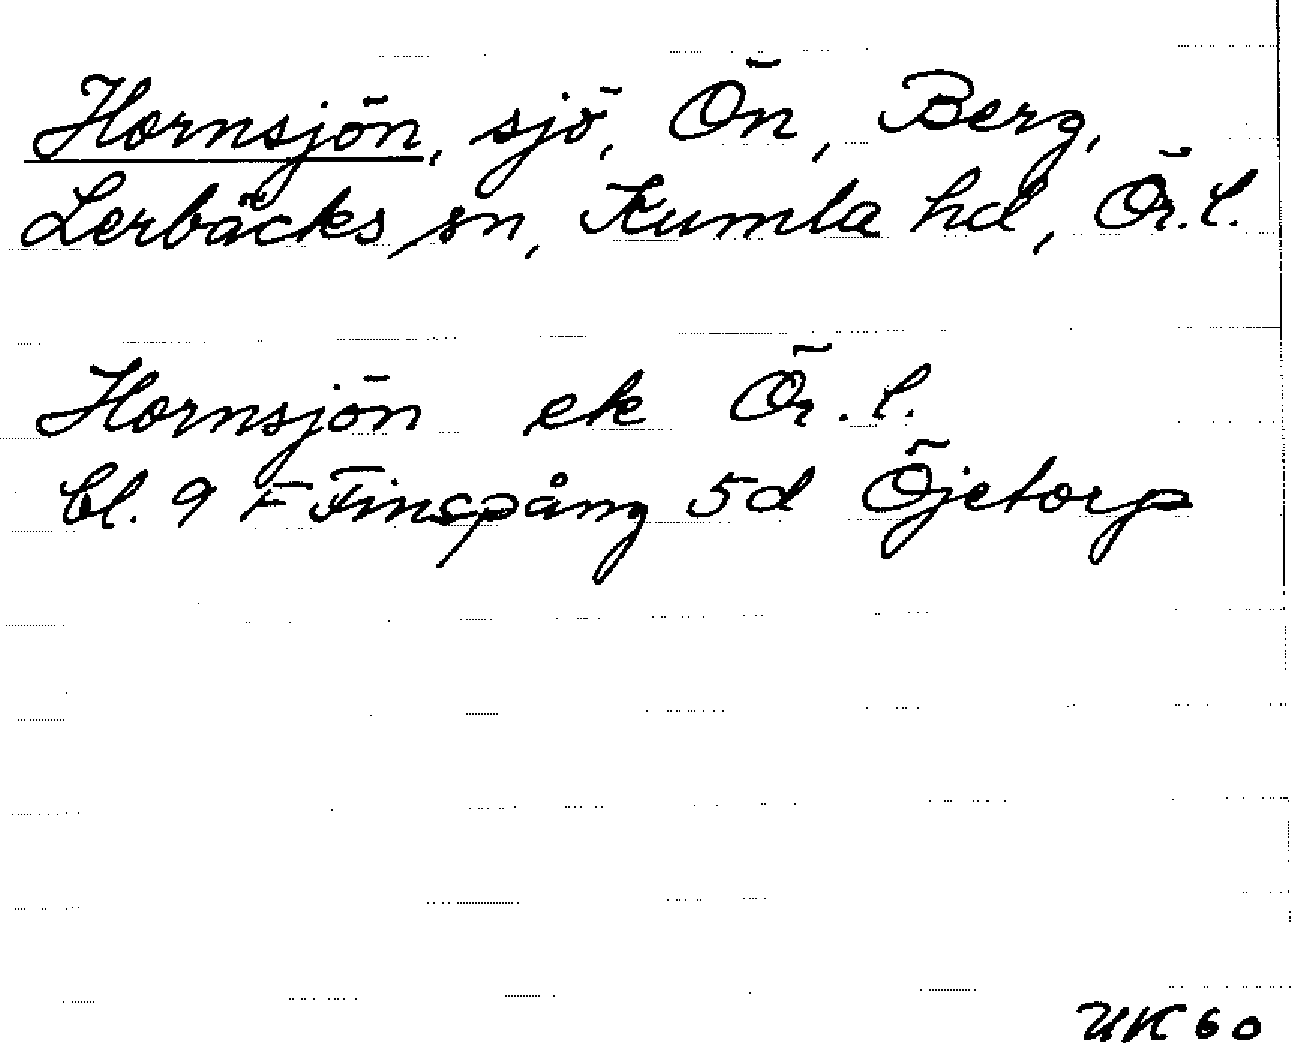 Hornsjön, sjö, Ön, Berg,
Lerbäcks sn, Kumla hd, Ör. l.
Hornsjön ek Ör. l.
bl. 9 F Finspång 5d Öjetorp
UK 60